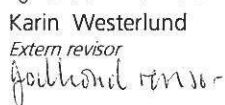 Karin Westerlund
Extern revisor
Godkänd revisor